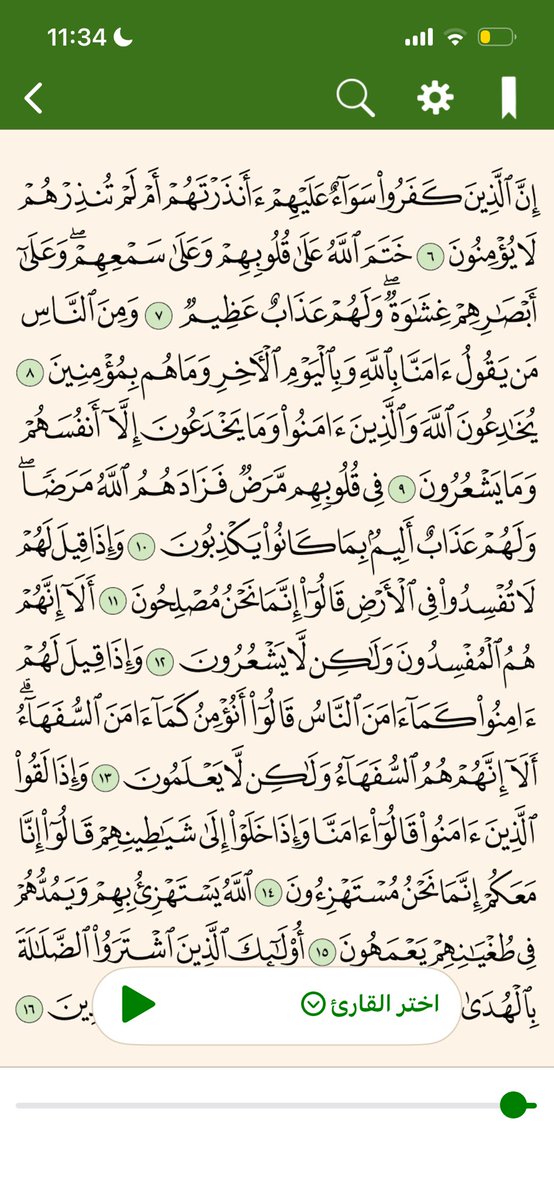 11:34
إِنَّ ٱلَّذِينَ كَفَرُوا۟ سَوَآءٌ عَلَيْهِمْ ءَأَنذَرْتَهُمْ أَمْ لَمْ تُنذِرْهُمْ
لَا يُؤْمِنُونَ ٦ خَتَمَ ٱللَّهُ عَلَىٰ قُلُوبِهِمْ وَعَلَىٰ سَمْعِهِمْ ۖ وَعَلَىٰٓ
أَبْصَٰرِهِمْ غِشَٰوَةٌ ۖ وَلَهُمْ عَذَابٌ عَظِيمٌ ٧ وَمِنَ ٱلنَّاسِ
مَن يَقُولُ ءَامَنَّا بِٱللَّهِ وَبِٱلْيَوْمِ ٱلْءَاخِرِ وَمَا هُم بِمُؤْمِنِينَ ٨
يُخَٰدِعُونَ ٱللَّهَ وَٱلَّذِينَ ءَامَنُوا۟ وَمَا يَخْدَعُونَ إِلَّآ أَنفُسَهُمْ
وَمَا يَشْعُرُونَ ٩ فِى قُلُوبِهِم مَّرَضٌ فَزَادَهُمُ ٱللَّهُ مَرَضًا ۖ
وَلَهُمْ عَذَابٌ أَلِيمٌۢ بِمَا كَانُوا۟ يَكْذِبُونَ ١٠ وَإِذَا قِيلَ لَهُمْ
لَا تُفْسِدُوا۟ فِى ٱلْأَرْضِ قَالُوٓا۟ إِنَّمَا نَحْنُ مُصْلِحُونَ ١١ أَلَآ إِنَّهُمْ
هُمُ ٱلْمُفْسِدُونَ وَلَٰكِن لَّا يَشْعُرُونَ ١٢ وَإِذَا قِيلَ لَهُمْ
ءَامِنُوا۟ كَمَآ ءَامَنَ ٱلنَّاسُ قَالُوٓا۟ أَنُؤْمِنُ كَمَآ ءَامَنَ ٱلسُّفَهَآءُ ۗ
أَلَآ إِنَّهُمْ هُمُ ٱلسُّفَهَآءُ وَلَٰكِن لَّا يَعْلَمُونَ ١٣ وَإِذَا لَقُوا۟
ٱلَّذِينَ ءَامَنُوا۟ قَالُوٓا۟ ءَامَنَّا وَإِذَا خَلَوْا۟ إِلَىٰ شَيَٰطِينِهِمْ قَالُوٓا۟ إِنَّا
مَعَكُمْ إِنَّمَا نَحْنُ مُسْتَهْزِءُونَ ١٤ ٱللَّهُ يَسْتَهْزِئُ بِهِمْ وَيَمُدُّهُمْ
فِى طُغْيَٰنِهِمْ يَعْمَهُونَ ١٥ أُو۟لَٰٓئِكَ ٱلَّذِينَ ٱشْتَرَوُا۟ ٱلضَّلَٰلَةَ
بِٱلْهُدَىٰ ١٦
اختر القارئ